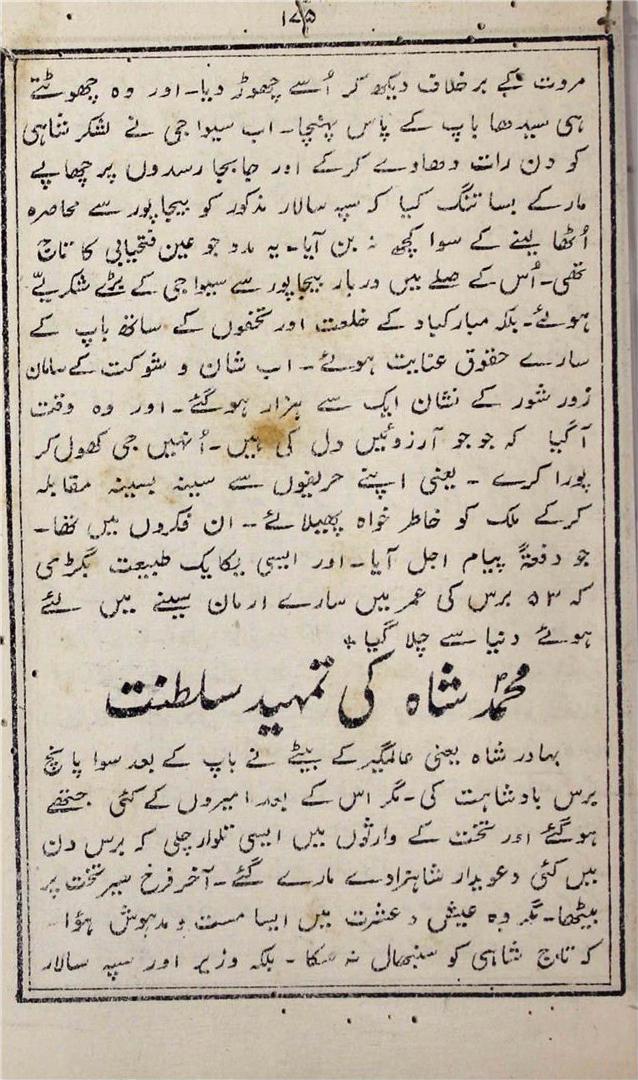 ۱۷۵
مروت کے برخلاف دیکھ کر اُسے چھوڑ دیا۔ اور وہ چھوٹتے
ہی سیدھا باپ کے پاس پہنچا۔ اب سیوا جی نے لشکر شاہی
کو دن رات دھاوے کرکے اور جابجا رسدوں پر چھاپے
مار کے بسا تنگ کیا کہ سپہ سالار مذکور کو بیجاپور سے محاصرہ
اُٹھا لینے کے سوا کچھ نہ بن آیا۔ یہ مدد جو عین فتحیابی کا تاج
تھی۔ اُس کے صلے میں دربار بیجاپور سے سیوا جی کے بڑے شکریے
ہوئے۔ بلکہ مبارکباد کے خلعت اور تحفوں کے ساتھ باپ کے
سارے حقوق عنایت ہوئے۔ اب شان و شوکت کے سامان
زور شور کے نشان ایک سے ہزار ہوگئے۔ اور وہ وقت
آگیا کہ جو جو آرزوئیں دل کی ہیں۔ اُنہیں جی کھول کر
پورا کرے۔ یعنی اپنے حریفوں سے سینہ بسینہ مقابلہ
کرکے ملک کو خاطر خواہ پھیلائے۔ ان فکروں میں تھا۔
جو دفعۃً پیام اجل آیا۔ اور ایسی یکایک طبیعت بگڑی
کہ ۵۳ برس کی عمر میں سارے ارمان سینے میں لئے
ہوئے دنیا سے چلا گیا *
محمد شاہ کی تمہید سلطنت
بہادر شاہ یعنی عالمگیر کے بیٹے نے باپ کے بعد سوا پانچ
برس بادشاہت کی۔ مگر اس کے بعد امیروں کے کئی جتھے
ہوگئے اور تخت کے وارثوں میں ایسی تلوار چلی کہ برس دن
میں کئی دعویدار شاہزادے مارے گئے۔ آخر فرخ سیر تخت پر
بیٹھا۔ مگر وہ عیش و عشرت میں ایسا مست و مدہوش ہؤا
کہ تاج شاہی کو سنبھال نہ سکا۔ بلکہ وزیر اور سپہ سالار